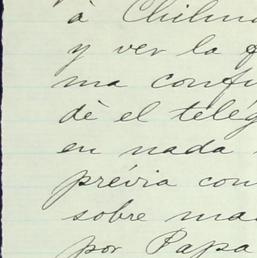 á Chilma
y ver la f
ma confi
dè el telég
en nada
prévia con
sobre ma
por Papa